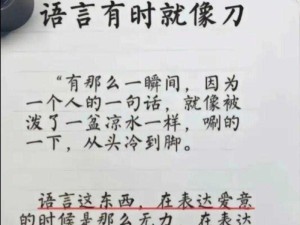 语言有时就像刀
“有那么一瞬间，因为
一个人的一句话，就像被
泼了一盆凉水一样，唰的
一下，从头冷到脚。
语言这东西，在表达爱意
的时候是那么无力，在表达